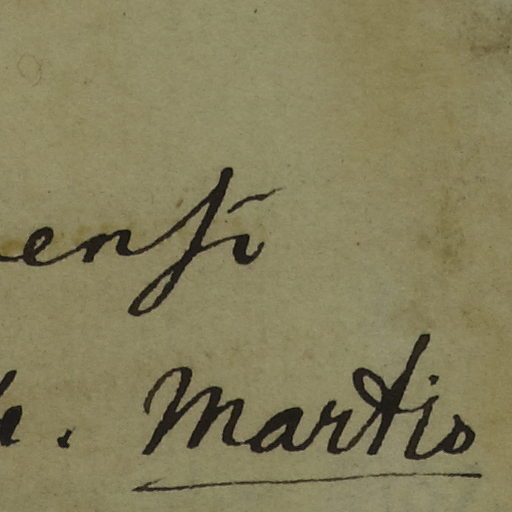 ensi
. Martio